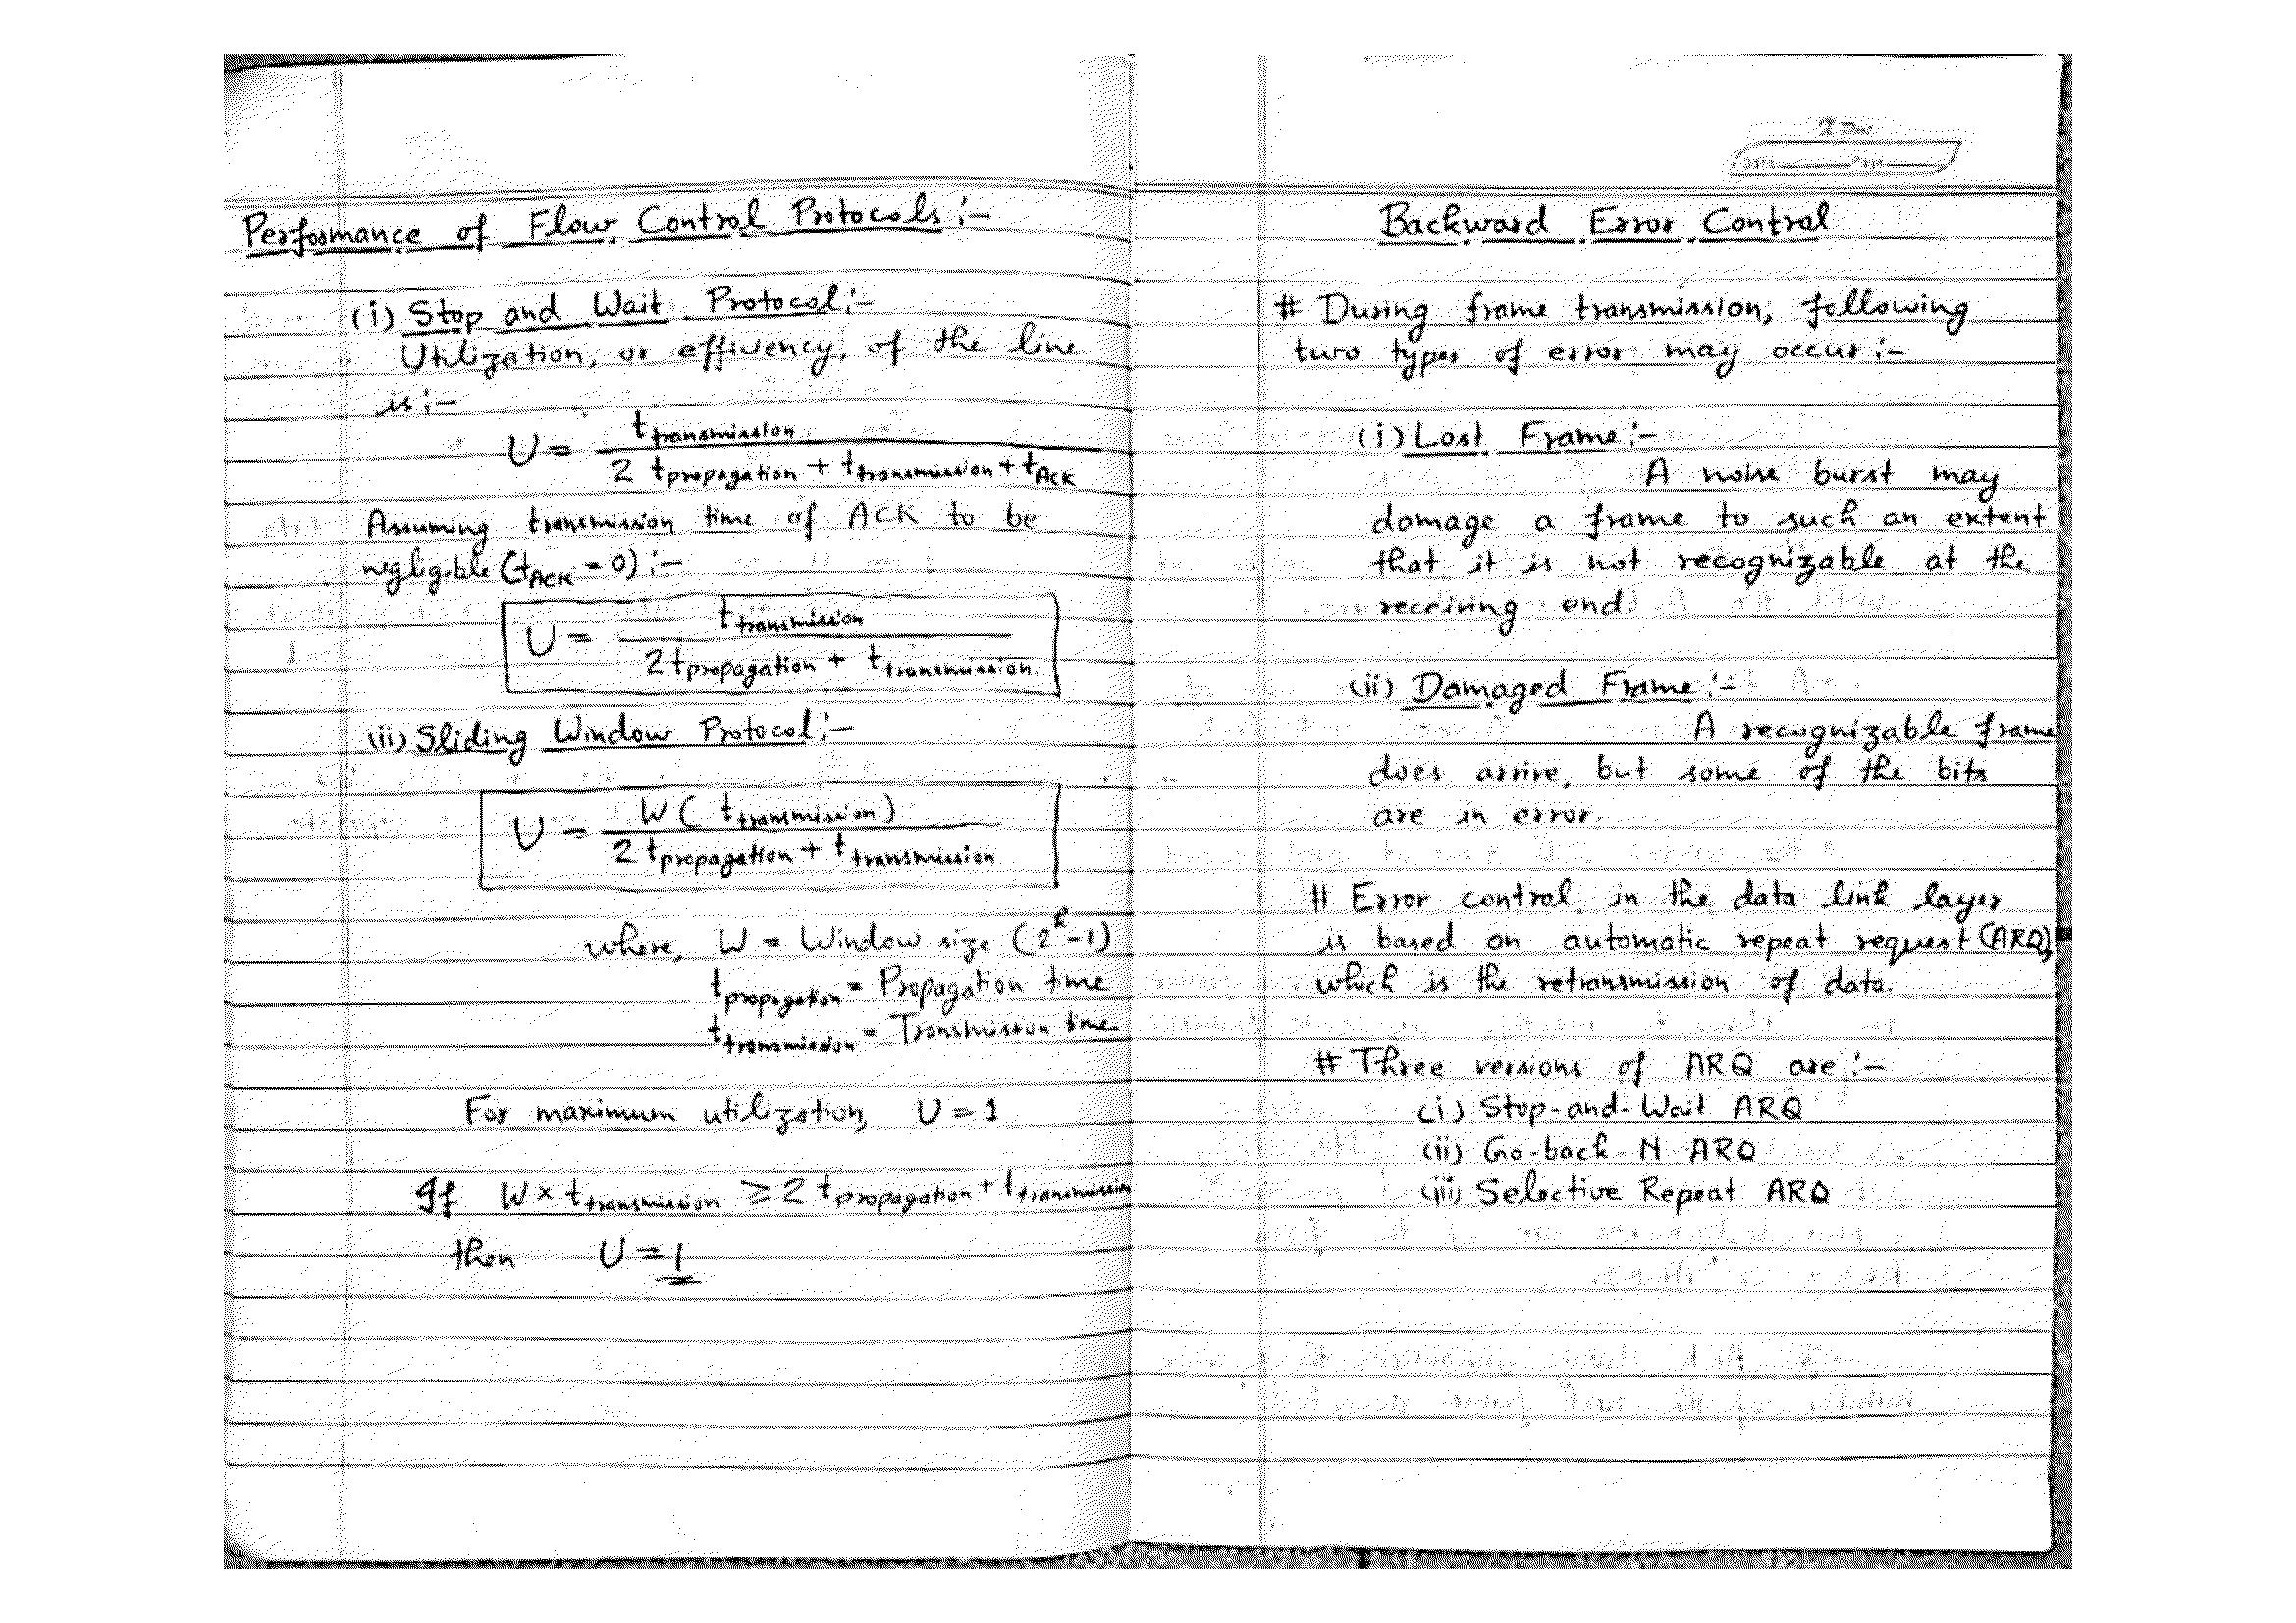 Performance of Flow Control Protocols :-
(i) Stop and Wait Protocol :-
Utilization, or effivency, of the line
is :-
U = t_transmission / (2 t_propagation + t_transmission + t_ACK)
Assuming transmission time of ACK to be
negligible (t_ACK = 0) :-
U = t_transmission / (2 t_propagation + t_transmission)
(ii) Sliding Window Protocol :-
U = W ( t_transmission ) / (2 t_propagation + t_transmission)
where, W = Window size (2^k - 1)
t_propagation = Propagation time
t_transmission = Transmission time
For maximum utilization, U = 1
If W × t_transmission ≥ 2 t_propagation + t_transmission
then U = 1
Backward Error Control
# During frame transmission, following
two types of error may occur :-
(i) Lost Frame :-
A noise burst may
damage a frame to such an extent
that it is not recognizable at the
receiving end.
(ii) Damaged Frame :-
A recognizable frame
does arrive, but some of the bits
are in error.
# Error control in the data link layer
is based on automatic repeat request (ARQ),
which is the retransmission of data.
# Three versions of ARQ are :-
(i) Stop-and-Wait ARQ
(ii) Go-back-N ARQ
(iii) Selective Repeat ARQ